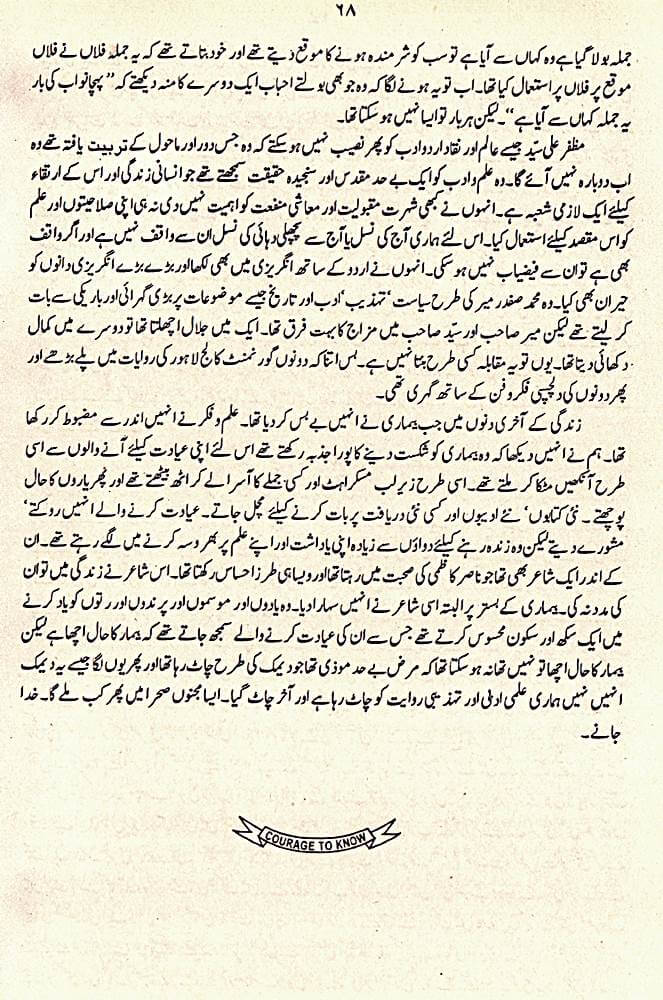 ۶۸
جملہ بولا گیا ہے وہ کہاں سے آیا ہے تو سب کو شرمندہ ہونے کا موقع دیتے تھے اور خود بتاتے تھے کہ یہ جملہ فلاں نے فلاں
موقع پر فلاں پر استعمال کیا تھا۔ اب تو یہ ہونے لگا کہ وہ جو بھی بولتے احباب ایک دوسرے کا منہ دیکھتے کہ ”پہچانو اب کی بار
یہ جملہ کہاں سے آیا ہے“۔ لیکن ہر بار تو ایسا نہیں ہو سکتا تھا۔
مظفر علی سیّد جیسے عالم اور نقاد اردو ادب کو پھر نصیب نہیں ہو سکتے کہ وہ جس دور اور ماحول کے تربیت یافتہ تھے وہ
اب دوبارہ نہیں آئے گا۔ وہ علم و ادب کو ایک بے حد مقدس اور سنجیدہ حقیقت سمجھتے تھے جو انسانی زندگی اور اس کے ارتقاء
کیلئے ایک لازمی شعبہ ہے۔ انہوں نے کبھی شہرت مقبولیت اور معاشی منفعت کو اہمیت نہیں دی نہ ہی اپنی صلاحیتوں اور علم
کو اس مقصد کیلئے استعمال کیا۔ اس لئے ہماری آج کی نسل یا آج سے پچھلی دہائی کی نسل ان سے واقف نہیں ہے اور اگر واقف
بھی ہے تو ان سے فیضیاب نہیں ہو سکی۔ انہوں نے اردو کے ساتھ انگریزی میں بھی لکھا اور بڑے بڑے انگریزی دانوں کو
حیران بھی کیا۔ وہ محمد صفدر میر کی طرح سیاست‘ تہذیب‘ ادب اور تاریخ جیسے موضوعات پر بڑی گہرائی اور باریکی سے بات
کر لیتے تھے لیکن میر صاحب اور سیّد صاحب میں مزاج کا بہت فرق تھا۔ ایک میں جلال اچھلتا تھا تو دوسرے میں کمال
دکھائی دیتا تھا۔ یوں تو یہ مقابلہ کسی طرح بنتا نہیں ہے۔ بس اتنا کہ دونوں گورنمنٹ کالج لاہور کی روایات میں پلے بڑھے اور
پھر دونوں کی دلچسپی فکر و فن کے ساتھ گہری تھی۔
زندگی کے آخری دنوں میں جب بیماری نے انہیں بے بس کر دیا تھا۔ علم و فکر نے انہیں اندر سے مضبوط کر رکھا
تھا۔ ہم نے انہیں دیکھا کہ وہ بیماری کو شکست دینے کا پورا جذبہ رکھتے تھے اس لئے اپنی عیادت کیلئے آنے والوں سے اسی
طرح آنکھیں مٹکا کر ملتے تھے۔ اسی طرح زیر لب مسکراہٹ اور کسی جملے کا آسرا لے کر اٹھ بیٹھتے تھے اور پھر یاروں کا حال
پوچھتے۔ نئی کتابوں‘ نئے ادیبوں اور کسی نئی دریافت پر بات کرنے کیلئے مچل جاتے۔ عیادت کرنے والے انہیں روکتے‘
مشورے دیتے لیکن وہ زندہ رہنے کیلئے دواؤں سے زیادہ اپنی یادداشت اور اپنے علم پر بھروسہ کرنے میں لگے رہتے تھے۔ ان
کے اندر ایک شاعر بھی تھا جو ناصر کاظمی کی صحبت میں رہتا تھا اور ویسا ہی طرز احساس رکھتا تھا۔ اس شاعر نے زندگی میں تو ان
کی مدد نہ کی۔ بیماری کے بستر پر البتہ اسی شاعر نے انہیں سہارا دیا۔ وہ یادوں اور موسموں اور پرندوں اور رتوں کو یاد کرنے
میں ایک سکھ اور سکون محسوس کرتے تھے جس سے ان کی عیادت کرنے والے سمجھ جاتے تھے کہ بیمار کا حال اچھا ہے لیکن
بیمار کا حال اچھا تو نہیں تھا نہ ہو سکتا تھا کہ مرض بے حد موذی تھا جو دیمک کی طرح چاٹ رہا تھا اور پھر یوں لگا جیسے یہ دیمک
انہیں نہیں ہماری علمی ادبی اور تہذیبی روایت کو چاٹ رہا ہے اور آخر چاٹ گیا۔ ایسا مجنوں صحرا میں پھر کب ملے گا۔ خدا
جانے۔
COURAGE TO KNOW